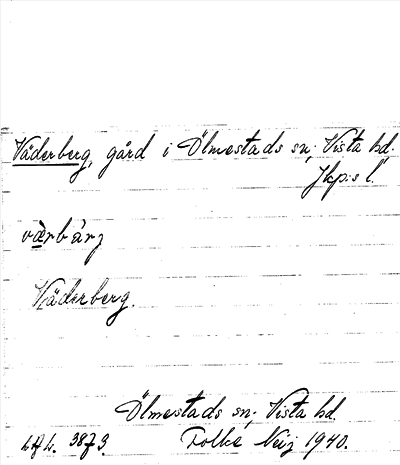 Väderberg, gård i Ölmestads sn; Vista hd.
Jkp:s l.
værbàrj
Väderberg.
Ölmestads sn; Vista hd.
Folke Neij 1940.